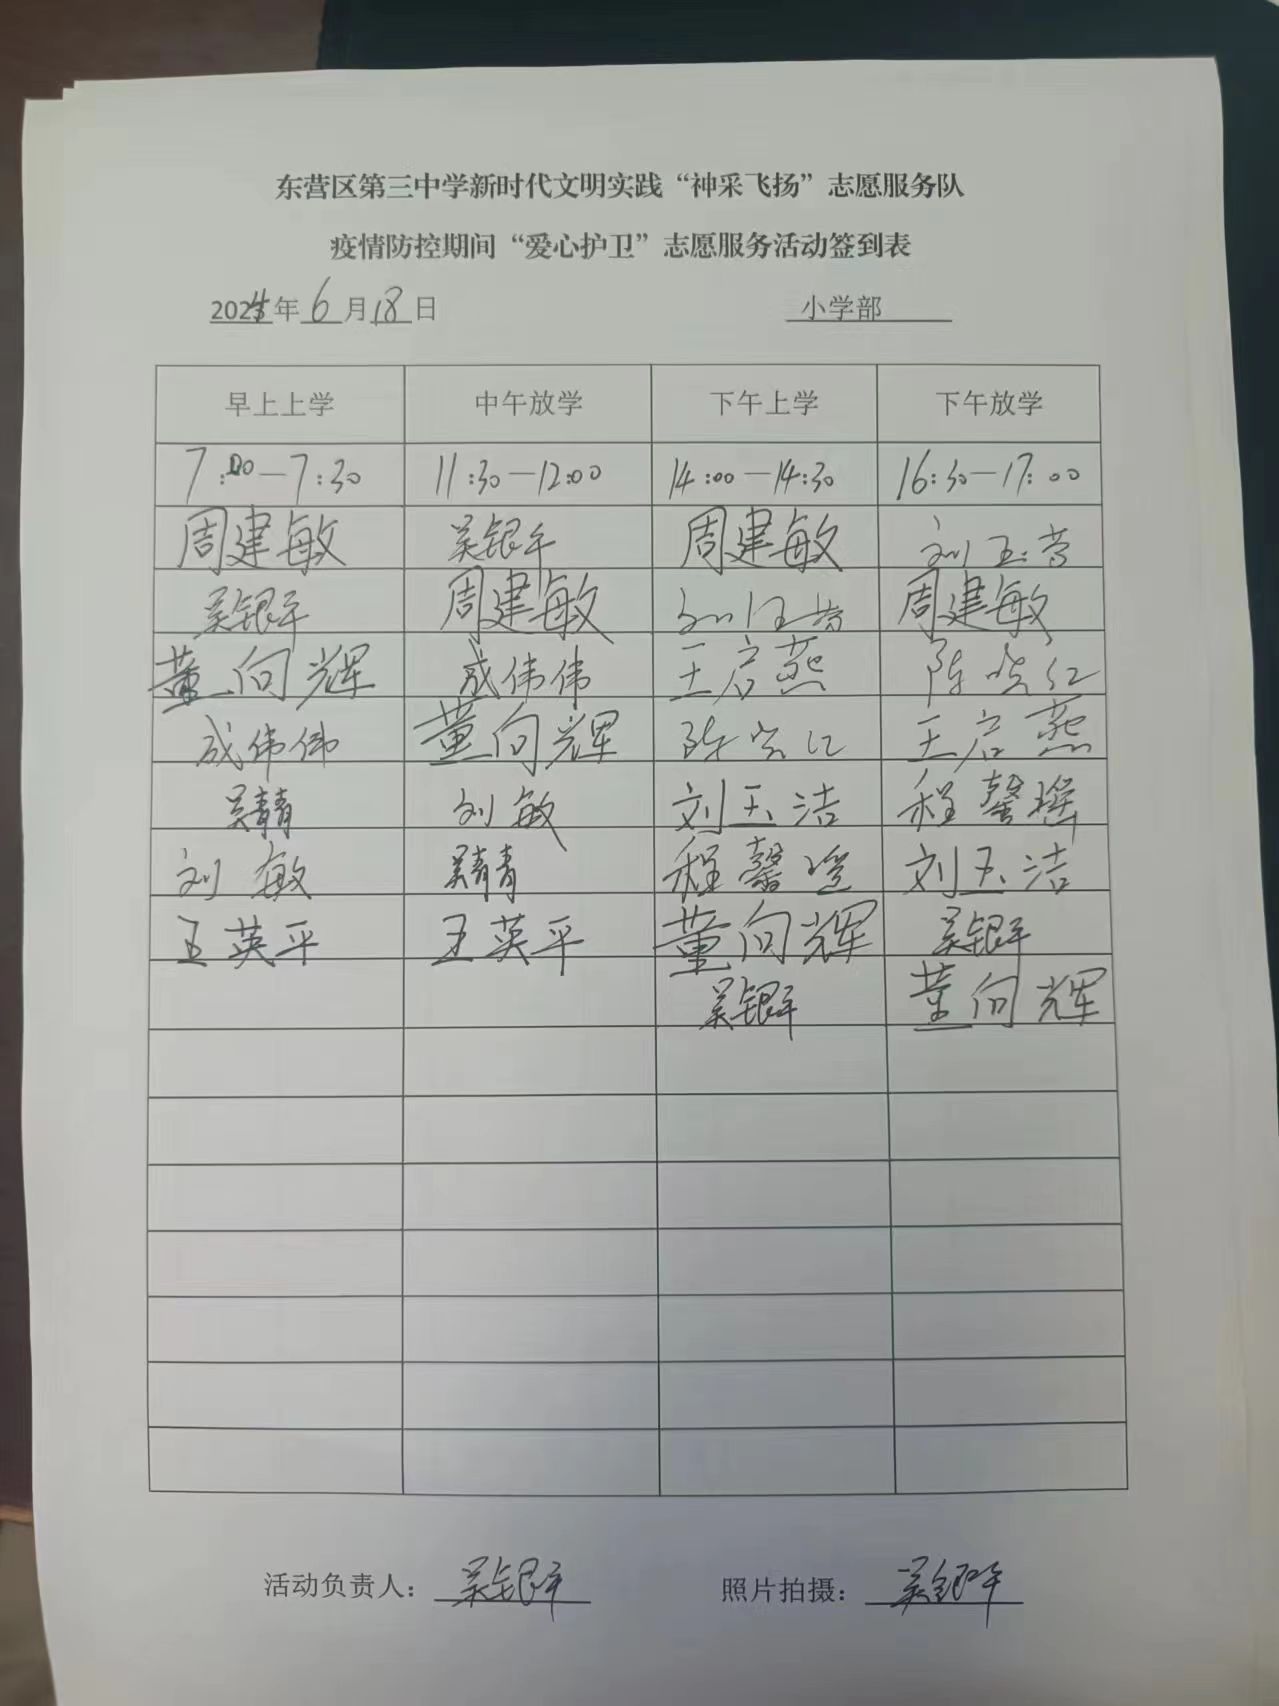 东营区第三中学新时代文明实践“神采飞扬”志愿服务队
疫情防控期间“爱心护卫”志愿服务活动签到表
2024年6月18日 小学部
早上上学 中午放学 下午上学 下午放学
7:00—7:30 11:30—12:00 14:00—14:30 16:30—17:00
周建敏 吴银平 周建敏 刘玉芳
吴银平 周建敏 刘玉芳 周建敏
董向辉 成伟伟 王启燕 陈晓红
成伟伟 董向辉 陈晓红 王启燕
吴青青 刘敏 刘玉洁 程馨瑶
刘敏 吴青青 程馨瑶 刘玉洁
王英平 王英平 董向辉 吴银平
吴银平 董向辉
活动负责人：吴银平 照片拍摄：吴银平